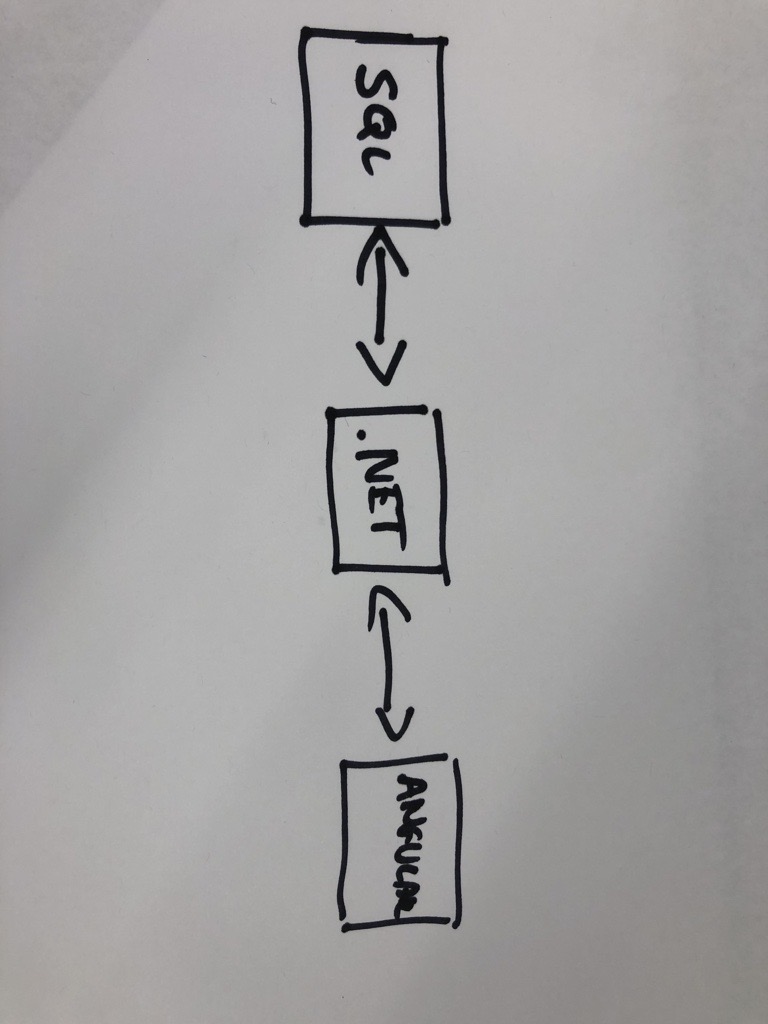 SQL
.NET
ANGULAR